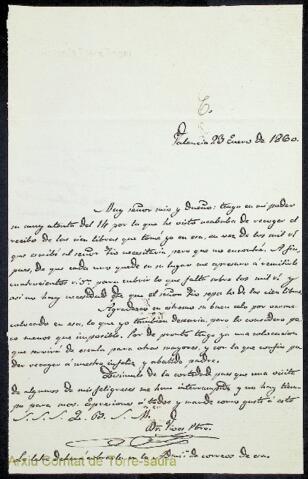 Palencia 23 Enero de 1860.
Muy señor mio y dueño: tengo en mi poder
su muy atenta del 14 por la que he visto acababa de recoger el
recibo de las cien libras que tomó ya en esa, en vez de los mil rs
que escribí al señor Tio necesitaria, pero que no encontró. A fin,
pues, de que cada uno quede en su lugar me apresuro á remitirle
cuatrocientos rs para cubrir lo que falta sobre los mil rs y
así no hay necesidad de que el señor Tio sepa lo de las cien libras
Agradezco en estremo su buen celo por verme
colocado en esa, lo que yo tambien desearia, pero lo considero po
co menos que imposible. Por de pronto tengo ya una colocacion
que servirá de escala para otras mayores, con lo que confio po
der recoger á nuestro infeliz y abatido padre.
Disimule la cortedad pues que una visita
de algunos de mis feligreses me han interrumpido y no hay tiem
po para mas. Espresiones á todos y mande como guste á este
S. S. S. Q. B. S. M.
Arxiu Comtat de Torre-saura